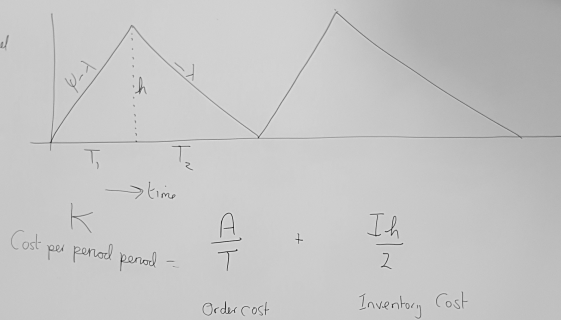 ψ-λ
h
-λ
T₁
T₂
→ time
K
Cost per period period = A/T + Ih/2
Order cost
Inventory Cost